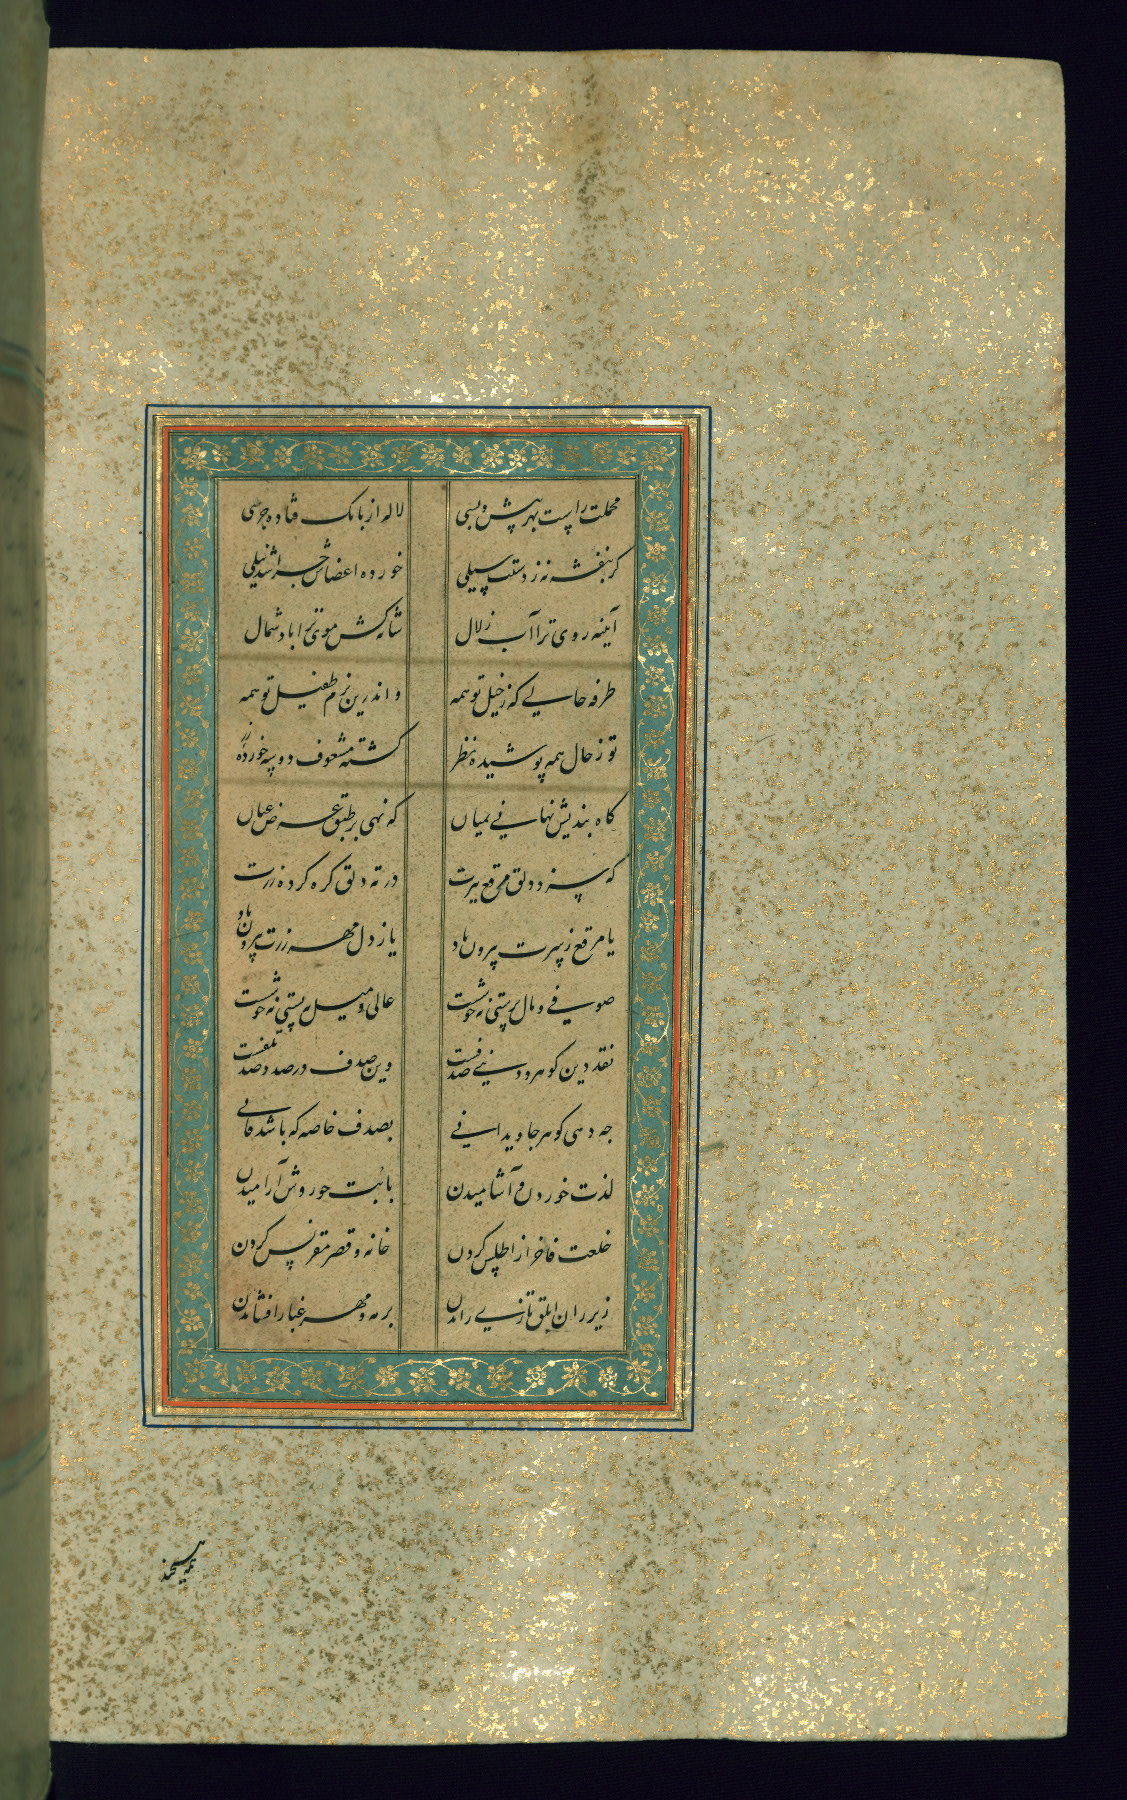 محملت راست بهر پیش و پسی لاله از بانک فتاده جرسی
کر بنفشه نه ز دستت سیلی خورده اعضاش چرا شد نیلی
آینه روی ترا آب زلال شانه کش موی ترا باد شمال
طرفه حالی که ز خیل تو همه و اندرین بزم طفیل تو همه
تو ز حال همه پوشیده نظر کشته مشعوف دو پیه خورده
کاه بندیش نهانی بمیان که نهی بر طبق عرض عیان
که پسندد دلق مرقع ببرت در ته دلق کره کرده زرت
یا مرقع ز برت بیرون باد یا ز دل مهر زرت بیرون باد
صوفی و مال پرستی نه خوشست عالی و میل بپستی نه خوشست
نقد دین کوهر و دنیی صدفست وین صدف در صدد صد تلفست
جه دهی کوهر جاویدانی بصدف خاصه که باشد فانی
لذت خوردن و آشامیدن با بت حور وش آرامیدن
خلعت فاخر از اطلس کردن خانه و قصر مقرنس کردن
زیر ران ابلق تازی راندن بر مه و مهر غبار افشاندن